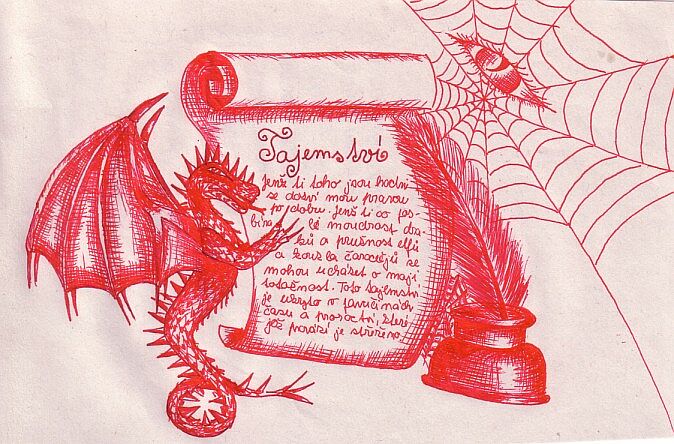 Tajemství
Jenž ti toho jsou hodni
se dozví mou pravou
podobu. Jenž ti co
moudrost dra-
ků a pružnost elfů
a kouzla čarodějů se
mohou ucházet o mojí
totožnost. Toto tajemství
je ukryto v pavučinách
času a proroctví, které
jež je střeženo.